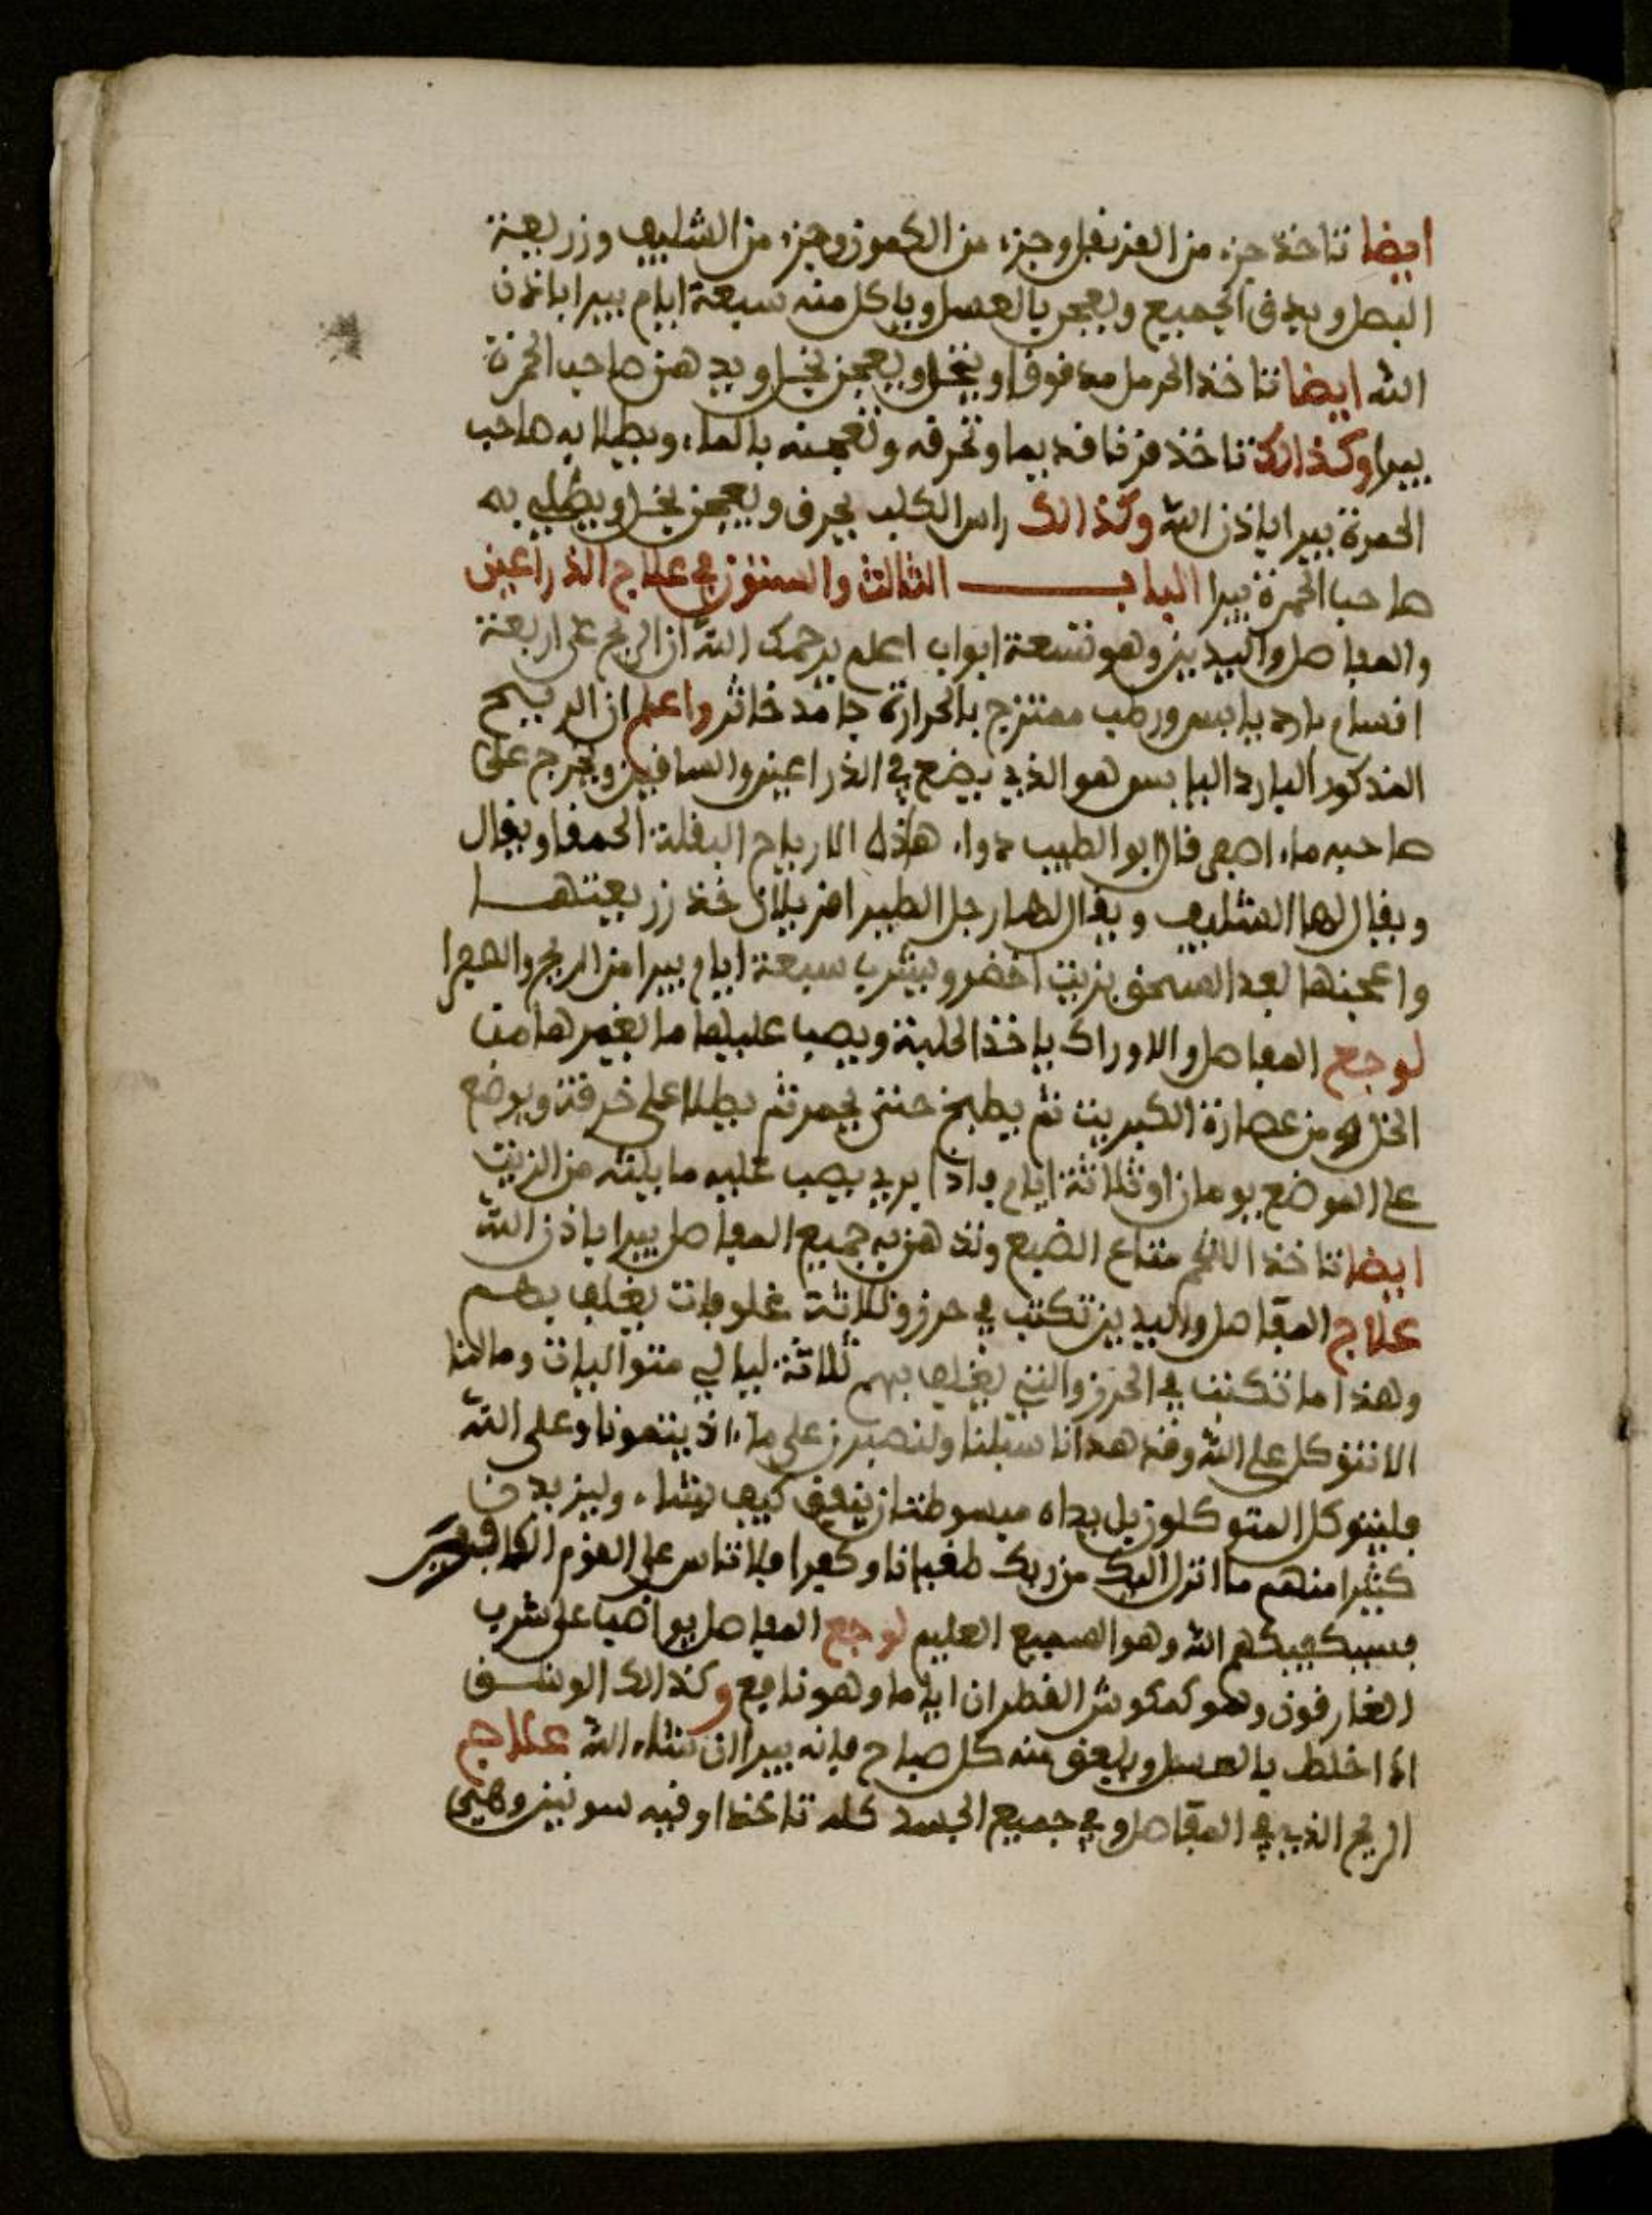 ايضا تاخذ جزء من القرنفل وجزء من الكمون وجزء من الشليف وزريعة
البصل ويدق الجميع ويعجن بالعسل وياكل منه سبعة ايام يبرا باذن
الله ايضا تاخذ الحرمل مدقوقا وينخل ويعجن بخل ويدهن صاحب الحمرة
يبرا وكذالك تاخذ قرنا قديما وتحرقه وتعجنه بالماء ويطلا به صاحب
الحمرة يبرا باذن الله وكذالك راس الكلب يحرق ويعجن بخل ويطلي به
صاحب الحمرة يبرا الباب الثالث والستون في علاج الذراعين
والمفاصل واليدين وهو تسعة ابواب اعلم يرحمك الله ان الريح على اربعة
اقسام بارد يابس ورطب ممتزج بالحرارة جامد خاثر واعلم ان الريح
المذكور البارد اليابس هو الذي يضع في الذراعين والساقين ويخرج على
صاحبه ماء اصفر قال ابو الطيب دواء هاذه الارياح البقلة الحمقا ويقال
ويقال لها الشليف ويقال لها رجل الطير افربيلان خذ زريعتها
واعجنها بعد السحق بزيت اخضر ويشرب سبعة ايام يبرا من الريح والصفرا
لوجع المفاصل والاوراك ياخذ الحلبة ويصب عليها ما يغمرها من
الخل ومن عصارة الكبريت ثم يطبخ حتى يحمر ثم يطلا على خرقة ويوضع
على الموضع يومان او ثلاثة ايام واذا يريد يصب عليه ما يلته من الزيت
ايضا تاخذ اللخم متاع الضبع وتدهن به جميع المفاصل يبرا باذن الله
علاج المفاصل واليدين تكتب في حرز وثلاثة غلوفات يغلف بهم
وهذا ما تكتب في الحرز والتي يغلف بهم ثلاثة ليالي متواليات ومالنا
الا نتوكل على الله وقد هدانا سبلنا ولنصبرن على ما اذيتمونا وعلى الله
فليتوكل المتوكلون بل يداه مبسوطتان ينفق كيف يشاء وليزيدن
كثيرا منهم ما انزل اليك من ربك طغيانا وكفرا فلا تاس على القوم الكافرين
فسيكفيكهم الله وهو السميع العليم لوجع المفاصل يواضب على شرب
الغارقون وهو كمكوش القطران اياما وهو نافع وكذالك الوشق
اذا اخلط بالعسل ويلعق منه كل صباح فانه يبرا ان شاء الله علاج
الريح الذي في المفاصل وفي جميع الجسد كله تاخذ اوقية سونيز وهي